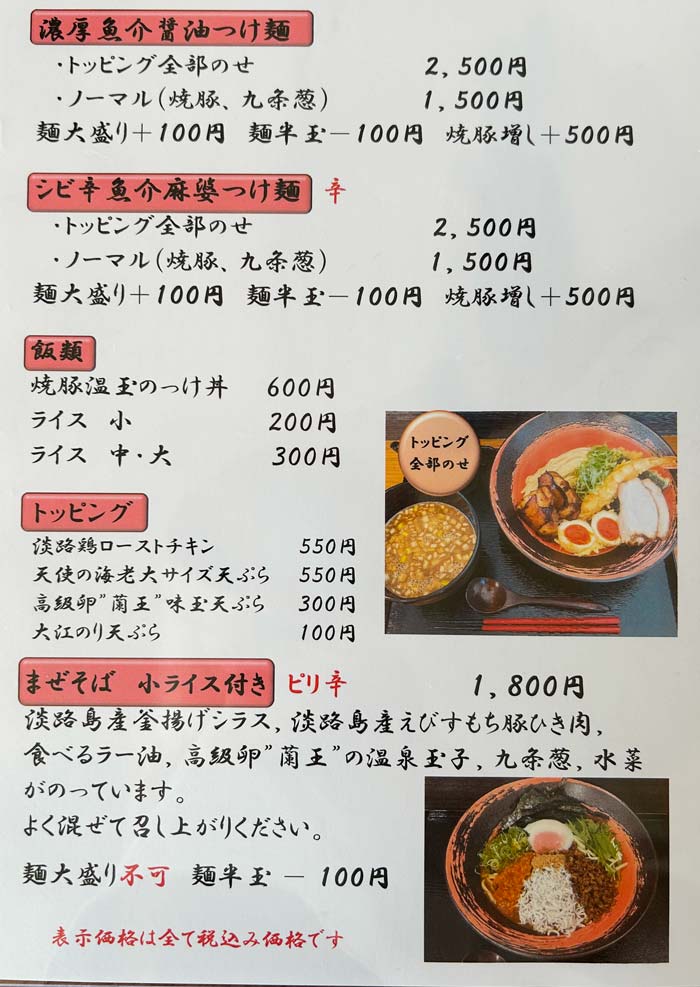 濃厚魚介醤油つけ麺
・トッピング全部のせ 2,500円
・ノーマル(焼豚、九条葱) 1,500円
麺大盛り+100円 麺半玉-100円 焼豚増し+500円
シビ辛魚介麻婆つけ麺 辛
・トッピング全部のせ 2,500円
・ノーマル(焼豚、九条葱) 1,500円
麺大盛り+100円 麺半玉-100円 焼豚増し+500円
飯類
焼豚温玉のっけ丼 600円
ライス 小 200円
ライス 中・大 300円
トッピング
全部のせ
トッピング
淡路鶏ローストチキン 550円
天使の海老大サイズ天ぷら 550円
高級卵"蘭王"味玉天ぷら 300円
大江のり天ぷら 100円
まぜそば 小ライス付き ピリ辛 1,800円
淡路島産釜揚げシラス,淡路島産えびすもち豚ひき肉,
食べるラー油,高級卵"蘭王"の温泉玉子,九条葱,水菜
がのっています。
よく混ぜて召し上がりください。
麺大盛り不可 麺半玉 - 100円
表示価格は全て税込み価格です